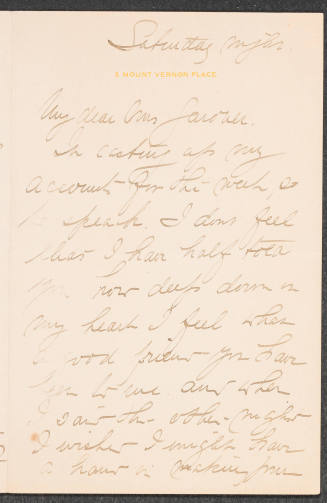 Saturday night.
3 MOUNT VERNON PLACE
My dear Mrs Gardner.
In casting up my
accounts for the week, so
to speak. I dont feel
that I have half told
you how deep down in
my heart I feel what
a good friend you have
been to me. and when
I said the other night
I wished I might have
a hand in making you